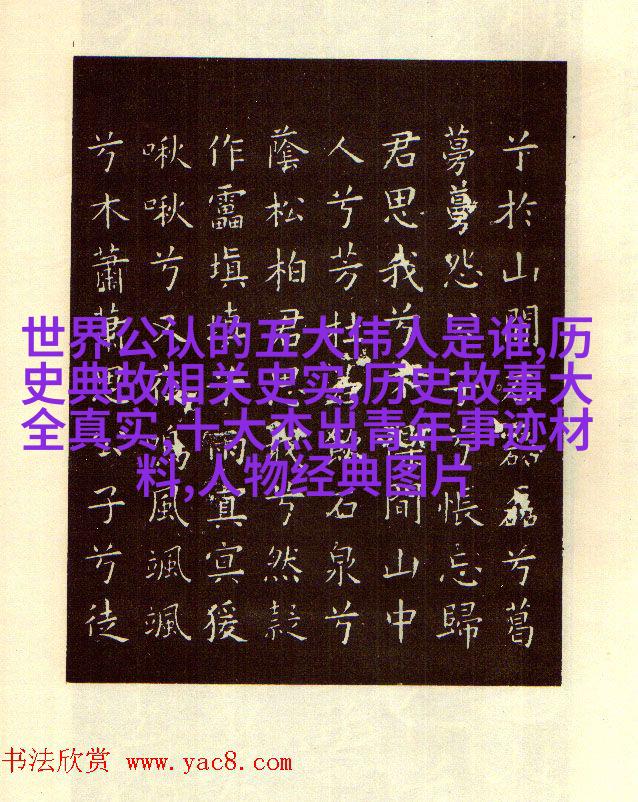 兮於山間磊兮葛
蔓蔓怨兮悵忘歸
君思我兮間山中
人兮芳杜石泉兮
蔭松柏君我兮然疑
作靁填填雨冥冥猨
啾啾兮又鳴風颯颯
兮木蕭蕭子兮徒
世界公认的五大伟人是谁,历
史典故相关史实,历史故事大
全真实,十大杰出青年事迹材
料,人物经典图片
书法欣赏 www.yac8.com